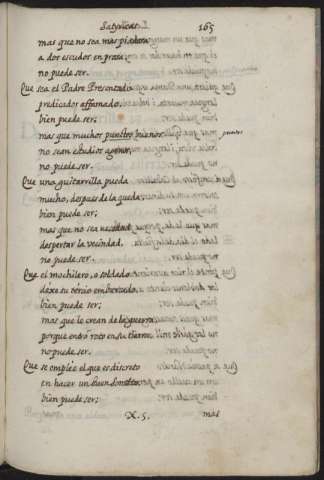 Satyricas. 165
mas que no sea mas pi
a dos escudos en prata;
no puede ser.
Que sea el Padre Presentado
predicador affamado,
bien puede ser;
mas que muchos puestos buenos puntos
no sean estudios agenos,
no puede ser.
Que una guitarrilla pueda
mucho, despues de la queda;
bien puede ser;
mas que no sea necedad
despertar la vecindad,
no puede ser.
Que el mochilero, o soldado
dexe su tercio embarcado,
bien puede ser;
mas que le crean de la guerra
porque entrò roto en su tierra,
no puede ser.
Que se emplee el que es discreto
en hacer un buen soneto,
bien puede ser;
X. 5. mas